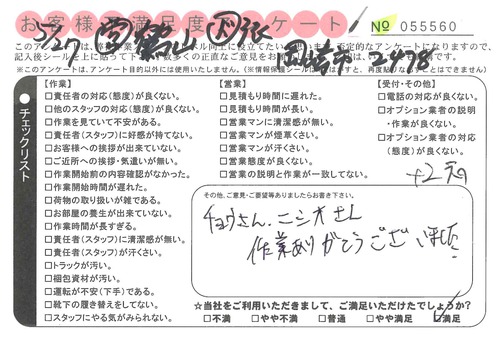 お客様満足度アンケート!
№ 055560
5/27 営 富山 引張 岡崎市 2478
※このアンケートは、アンケート目的以外には使用いたしません。
チェックリスト
【作業】
□責任者の対応(態度)が良くない。
□他のスタッフの対応(態度)が良くない。
□作業を見ていて不安がある。
□責任者(スタッフ)に好感が持てない。
□お客様への挨拶が出来ていない。
□ご近所への挨拶・気遣いが無い。
□作業開始前の内容確認がなかった。
□作業開始時間が遅れた。
□荷物の取り扱いが雑である。
□お部屋の養生が出来ていない。
□作業時間が長すぎる。
□責任者(スタッフ)に清潔感が無い。
□責任者(スタッフ)が汗くさい。
□トラックが汚い。
□梱包資材が汚い。
□運転が不安(下手)である。
□靴下の履き替えをしてない。
□スタッフにやる気がみられない。
【営業】
□見積もり時間に遅れた。
□見積もり時間が長い。
□営業マンに清潔感が無い。
□営業マンが煙草くさい。
□営業マンが汗くさい。
□営業態度が良くない。
□営業の説明と作業が一致してない。
【受付・その他】
□電話の対応が良くない。
□オプション業者の説明
・作業が良くない。
□オプション業者の対応
(態度)が良くない。
その他、ご意見・ご要望等ありましたらお書き下さい。
チョウさん、ニシオさん
作業ありがとうございました
☆当社をご利用いただきまして、ご満足いただけたでしょうか?
□不満 □やや不満 □普通 □やや満足 ☑満足